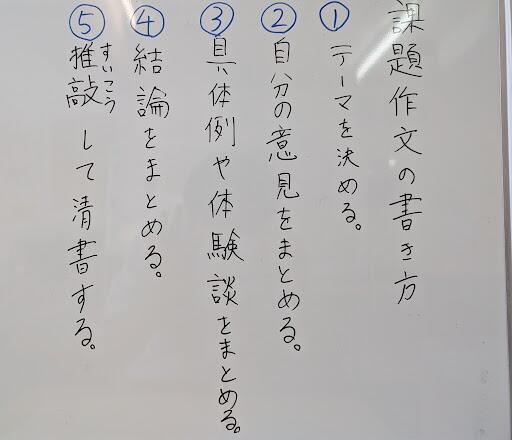 課題作文の書き方
①テーマを決める。
②自分の意見をまとめる。
③具体例や体験談をまとめる。
④結論をまとめる。
⑤推敲して清書する。
すいこう